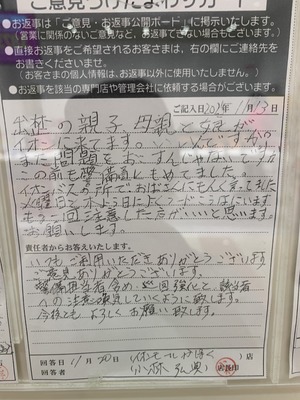 ご意見うけたまわりカード
●お返事は「ご意見・お返事公開ボード」に掲示いたします。
(営業に関係のないご意見など、お返事できない場合もございます。)
●直接お返事をご希望されるお客さまは、右の欄にご連絡先を
お書きくださいませ。
(お客さまの個人情報は、お返事以外に使用いたしません。)
●お返事を該当の専門店や管理会社に依頼する場合がございます。
ご記入日
の親子、母親と娘が
イオンに来てます。いいんですか。
また問題をおこすんじゃないですか
この前も警備員ともめてました。
イオンバスの所でおばさんにもんく言ってました
火曜日と木よう日によくフードコートにいます
もう一回注意した方がいいと思います。
お願いします。
責任者からお答えいたします。
いつもご利用いただきありがとうございます
ご意見ありがとうございます。
警備担当者含め、巡回強化と該当者
への注意喚起していくように致します。
今後ともよろしくお願い致します。
回答日 11月20日
店
回答者